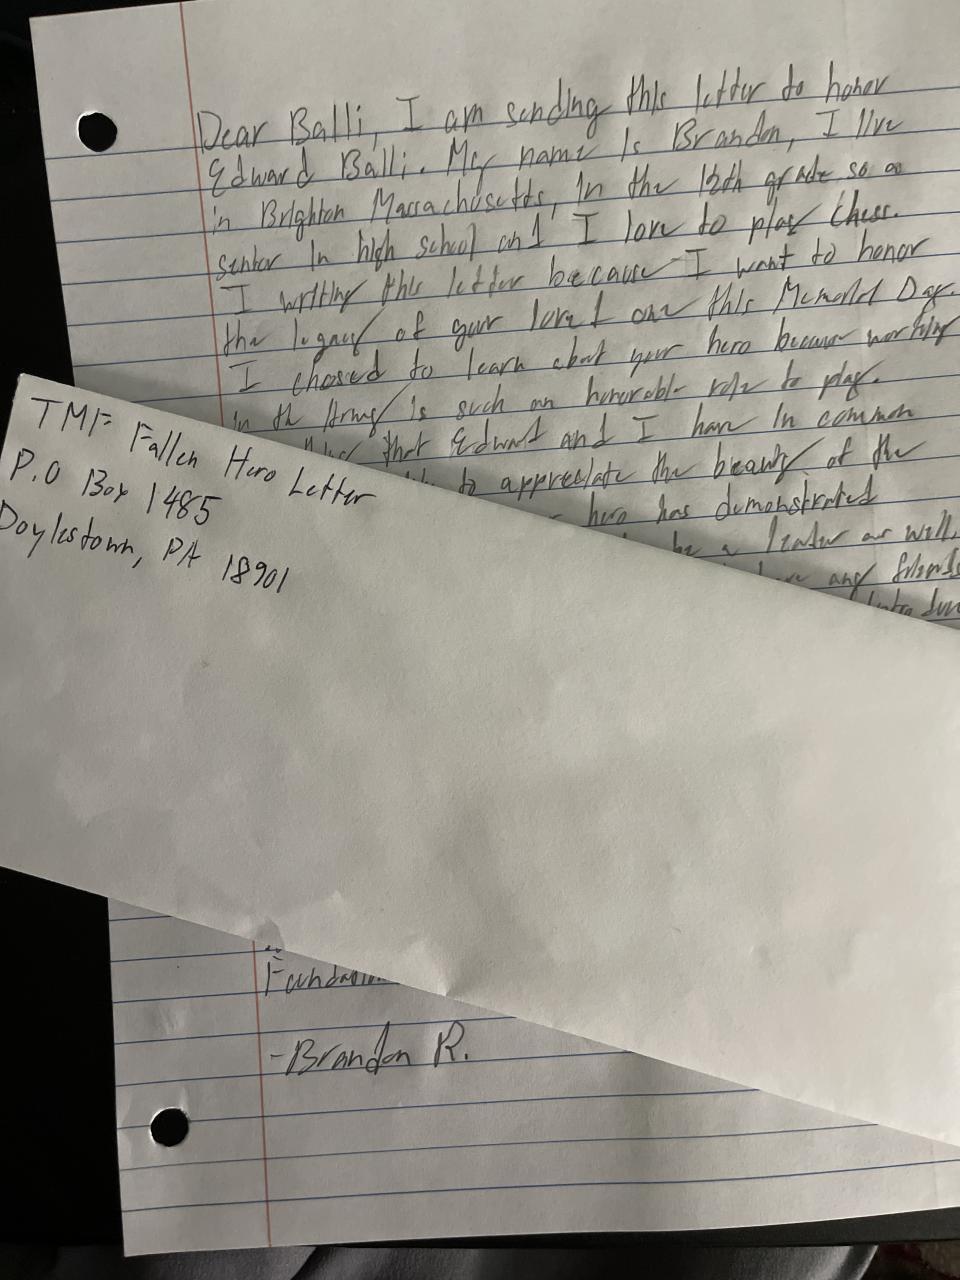 Dear Balli, I am sending this letter to honor
Edward Balli. My name is Brandon, I live
in Brighton Massachusetts, in the 12th grade so a
senior in high school and I love to play chess.
I writing this letter because I want to honor
the legacy of your loved one this Memorial Day.
I chosed to learn about your hero because working
in the Army is such an honorable role to play.
that Edward and I have in common
to appreciate the beauty of the
hero has demonstrated
be a leader as well.
any friends
TMF Fallen Hero Letter
P.O Box 1485
Doylestown, PA 18901
-Brandon R.